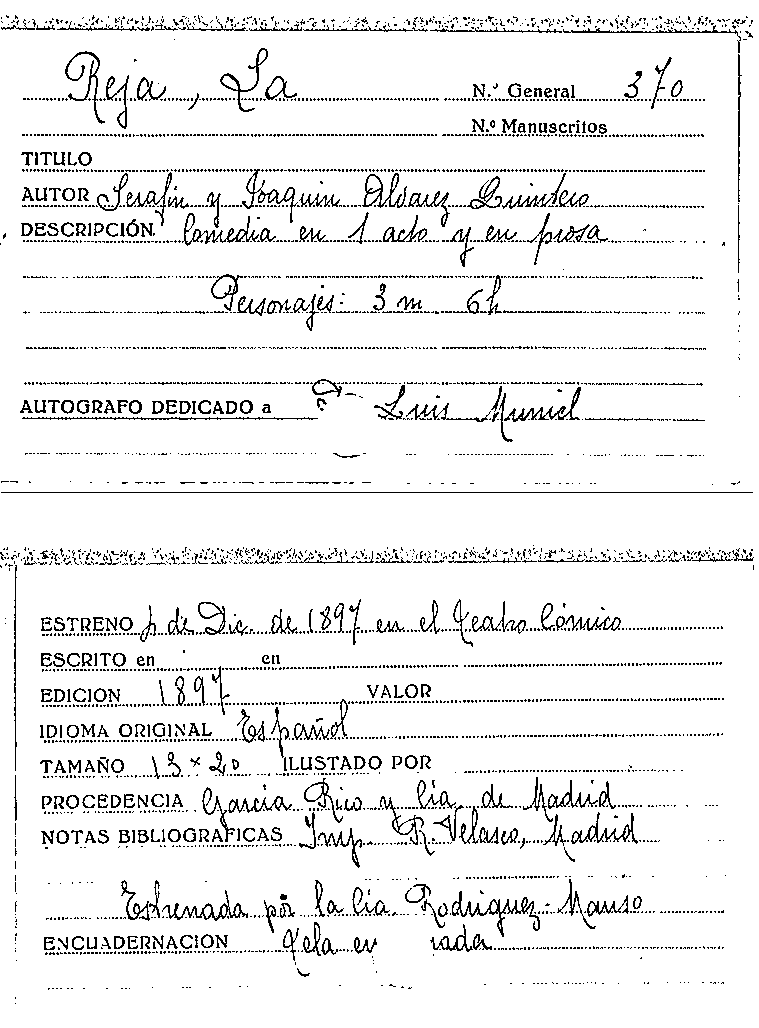 Reja, La N.º General 370
N.º Manuscritos
TITULO
AUTOR Serafin y Joaquin Alvarez Quintero
DESCRIPCIÓN Comedia en 1 acto y en prosa
Personajes: 3 m 6h
AUTOGRAFO DEDICADO a Luis Muriel
ESTRENO de Dic. de 1897 en el Teatro Cómico
ESCRITO en en
EDICION 1897 VALOR
IDIOMA ORIGINAL Español
TAMAÑO 13 x 20 ILUSTADO POR
PROCEDENCIA García Rico y Cía. de Madrid
NOTAS BIBLIOGRAFICAS Imp. R. Velasco, Madrid
Estrenada por la Cía. Rodriguez-Manso
ENCUADERNACION Tela en